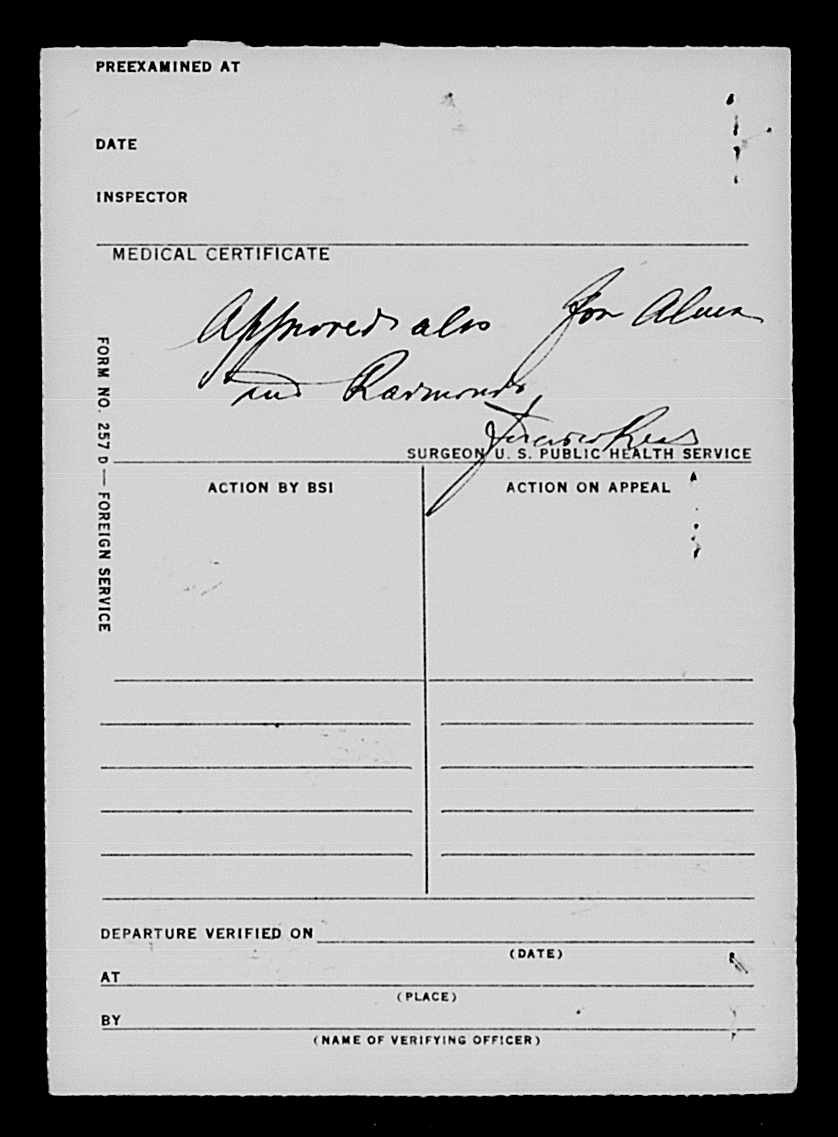 PREEXAMINED AT
DATE
INSPECTOR
MEDICAL CERTIFICATE
Approved also for
and Raimondo
SURGEON U. S. PUBLIC HEALTH SERVICE
FORM NO. 257 D — FOREIGN SERVICE
ACTION BY BSI
ACTION ON APPEAL
DEPARTURE VERIFIED ON
(DATE)
AT
(PLACE)
BY
(NAME OF VERIFYING OFFICER)